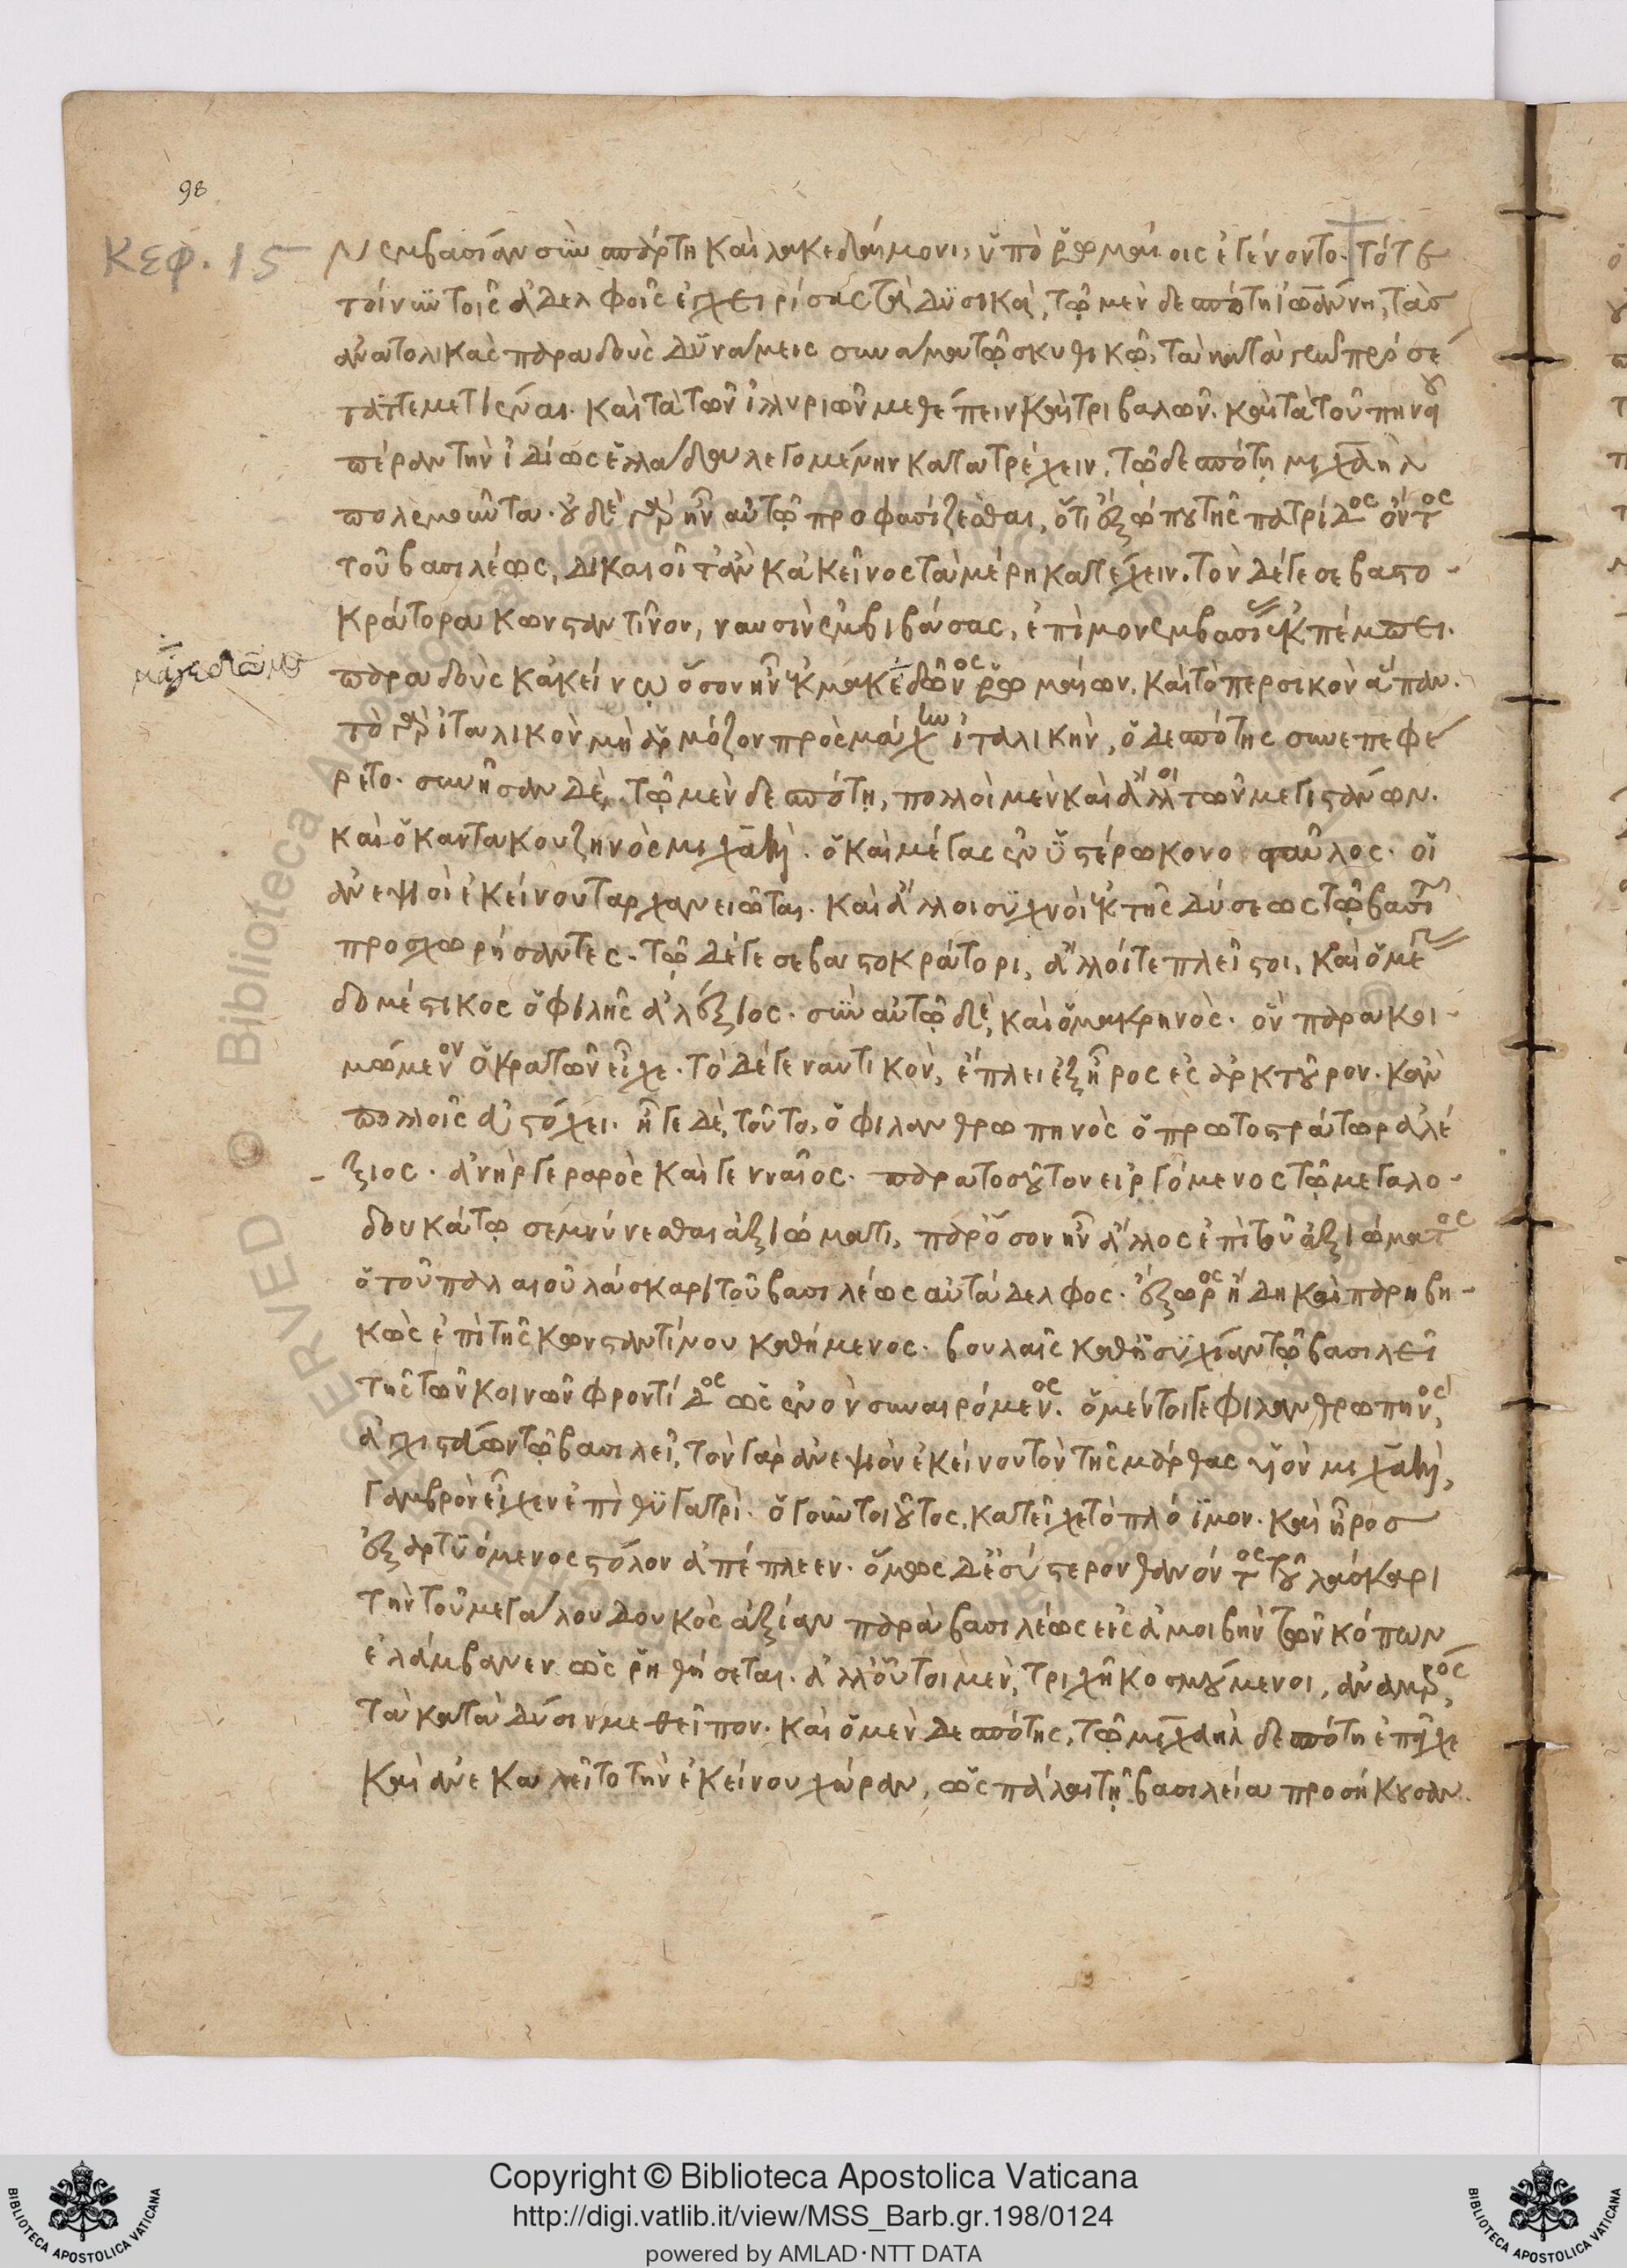 98
Κεφ. 15
νεμβασίαν σὺν σπάρτη καὶ λακεδαίμονι, ὑπὸ ῥωμαίοις ἐγένοντο. τότε
τοίνυν τοῖς ἀδελφοῖς ἐγχειρίσας τὰ δυσικά, τῷ μὲν δεσπότη ἰωάννη, τὰς
ἀνατολικὰς παραδοὺς δυνάμεις συνάμα τῷ σκυθικῷ, τὰ κατὰ γῆν προσέ
ταττε μετιέναι. καὶ τὰ τῶν ἰλλυριῶν μεθέπειν καὶ τριβαλῶν. καὶ τὰ τοῦ πηνειοῦ
πέραν τὴν ἰδίως ἑλλάδα λεγομένην κατατρέχειν. τῷ δεσπότῃ μιχαὴλ
πολεμοῦντα. οὐδὲ γὰρ ἦν αὐτῷ προφασίζεσθαι, ὅτι ἐξώπου τῆς πατρίδος ὄντος
τοῦ βασιλέως, δικαιοῖτ' ἂν κἀκεῖνος τὰ μέρη κατέχειν. τὸν δέ γε σεβαστο-
κράτορα κωνσταντῖνον, ναυσὶν ἐμβιβάσας, ἐπὶ μονεμβασίας ἐκπέμπει.
παραδοὺς κἀκείνῳ ὅσον ἦν ἐκ μακεδόνος ῥωμαίων. καὶ τὸ περσικὸν ἅπαν.
τὸ γὰρ ἰταλικὸν μὴ ἁρμόζον πρὸς μάχην ἰταλικήν, ὁ δεσπότης συνεπεφέ
ρετο. συνῆσαν δὲ, τῷ μὲν δεσπότῃ, πολλοὶ μὲν καὶ ἄλλοι τῶν μεγιστάνων.
καὶ ὁ καντακουζηνὸς μιχαήλ. ὁ καὶ μέγας ἐν ὑστέρω κονοσταῦλος. οἱ
ἀνεψιοὶ ἐκείνου ταρχανειῶται. καὶ ἄλλοι συχνοὶ ἐκ τῆς δύσεως τῷ βασιλεῖ
προσχωρήσαντες. τῷ δέ γε σεβαστοκράτορι, ἄλλοί τε πλεῖστοι, καὶ ὁ μέγας
δομέστικος ὁ φιλῆς ἀλέξιος. σὺν αὐτῷ δὲ, καὶ ὁ μακρηνὸς. ὃν παρακοι-
μώμενον ὁ κρατῶν εἶχε. τὸ δέ γε ναυτικὸν, ἔπλει ἐξ ἦρος ἐς ἀρκτοῦρον. κἀν
πολλοῖς ἀστόχει. ἦγε δὲ, τοῦτο, ὁ φιλανθρωπηνὸς ὁ πρωτοστράτωρ ἀλέ
ξιος. ἀνὴρ γεραρὸς καὶ γενναῖος. παρατοσοῦτον εἰργόμενος τῷ μεγαλο-
δουκάτῳ σεμνύνεσθαι ἀξιώματι, παρόσον ἦν ἄλλος ἐπὶ τοῦ ἀξιώματος
ὁ τοῦ παλαιοῦ λάσκαρι τοῦ βασιλέως αὐτάδελφος. ἔξωρος ἤδη καὶ παρηβη-
κὼς ἐπὶ τῆς κωνσταντίνου καθήμενος. βουλαῖς καθ' ἡσυχίαν τῷ βασιλεῖ
τῆς τῶν κοινῶν φροντίδος ὡς ἐνὸν συναιρόμενος. ὁ μέντοιγε φιλανθρωπηνὸς,
ἀγχιστάων τῷ βασιλεῖ, τὸν γὰρ ἀνεψιὸν ἐκείνου τὸν τῆς μάρθας υἱὸν μιχαήλ,
γαμβρὸν εἶχεν ἐπὶ θυγατρὶ. ὁ γοῦν τοιοῦτος, κατεῖχε τὸ πλόϊμον. καὶ ἦρος
ἐξαρτυόμενος στόλον ἀπέπλεεν. ὅμως δ' ἐσύστερον θανόντος τοῦ λάσκαρι
τὴν τοῦ μεγάλου δουκὸς ἀξίαν παρὰ βασιλέως εἰς ἀμοιβὴν τῶν κόπων
ἐλάμβανεν ὡς ῥηθήσεται. ἀλλ' οὗτοι μὲν, τριχῆ κοσμούμενοι, ἀνὰ μέρος,
τὰ κατὰ δύσιν μεθεῖπον. καὶ ὁ μὲν δεσπότης, τῷ μιχαὴλ δεσπότη ἐπῆχε
καὶ ἀνεκαλεῖτο τὴν ἐκείνου χώραν, ὡς πάλαι τῇ βασιλεία προσήκουσαν.
Copyright © Biblioteca Apostolica Vaticana
http://digi.vatlib.it/view/MSS_Barb.gr.198/0124
powered by AMLAD·NTT DATA
BIBLIOTECA APOSTOLICA VATICANA
BIBLIOTECA APOSTOLICA VATICANA